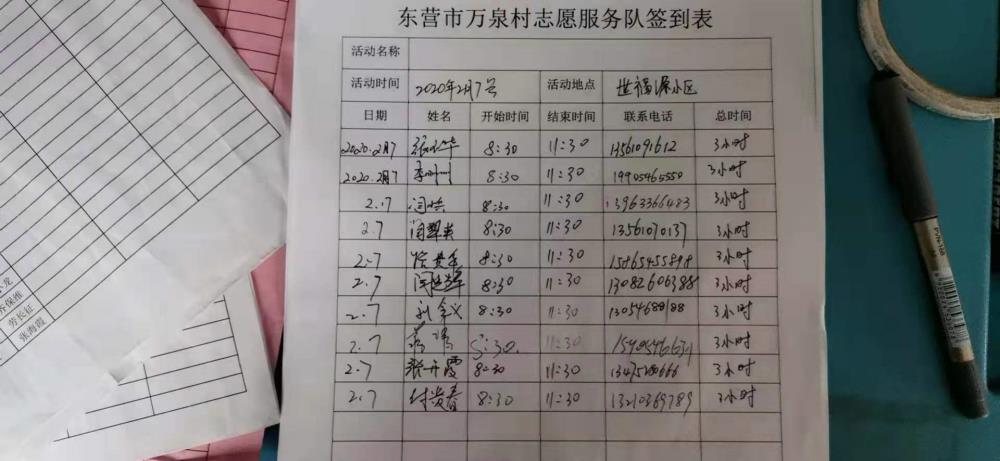 东营市万泉村志愿服务队签到表
活动名称
活动时间 2020年2月7号 活动地点 世福源小区
日期 姓名 开始时间 结束时间 联系电话 总时间
2020.2月7 8:30 11:30 13561091612 3小时
2020.2月7 8:30 11:30 19905465550 3小时
2.7 8:30 11:30 13963366483 3小时
2.7 8:30 11:30 13561070137 3小时
2.7 8:30 11:30 3小时
2.7 8:30 11:30 13082606388 3小时
2.7 刘 8:30 11:30 13054688188 3小时
2.7 8:30 11:30 3小时
2.7 张开霞 8:30 11:30 3小时
2.7 付贵春 8:30 11:30 13210369789 3小时
齐保维
劳长征
张海霞